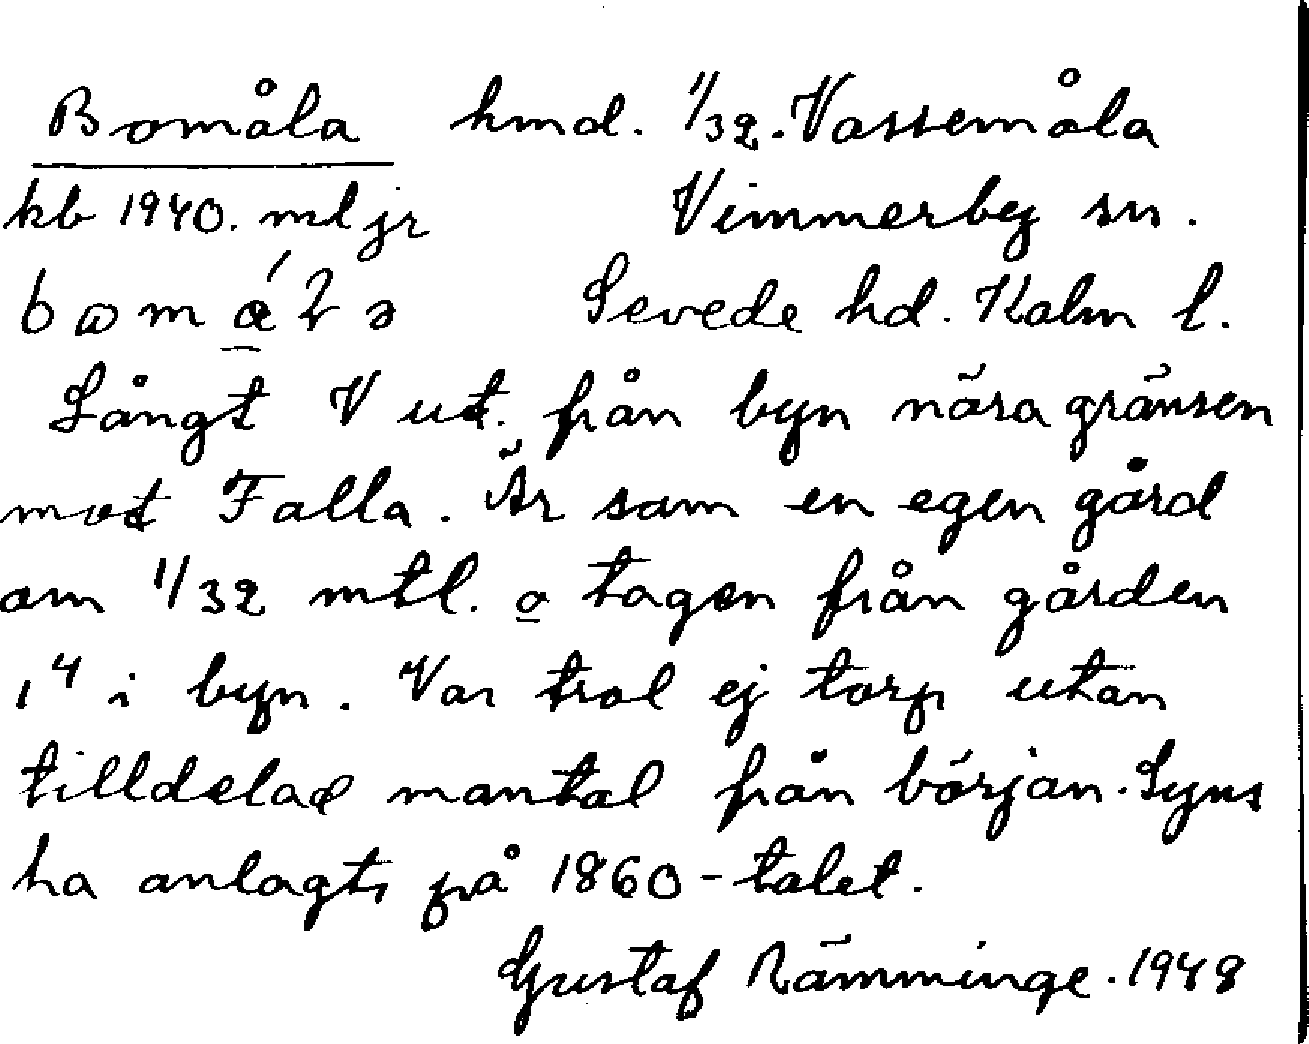 Bomåla hmd. 1/32. Vassemåla
kb 1940. mljr Vimmerby sn.
Sevede hd. Kalm l.
Långt V ut. från byn nära gränsen
mot Falla. Är som en egen gård
om 1/32 mtl. o tagen från gården
1⁴ i byn. Var trol ej torp utan
tilldelad mantal från början. Syns
ha anlagts på 1860-talet.
Gustaf Rämminge. 1948